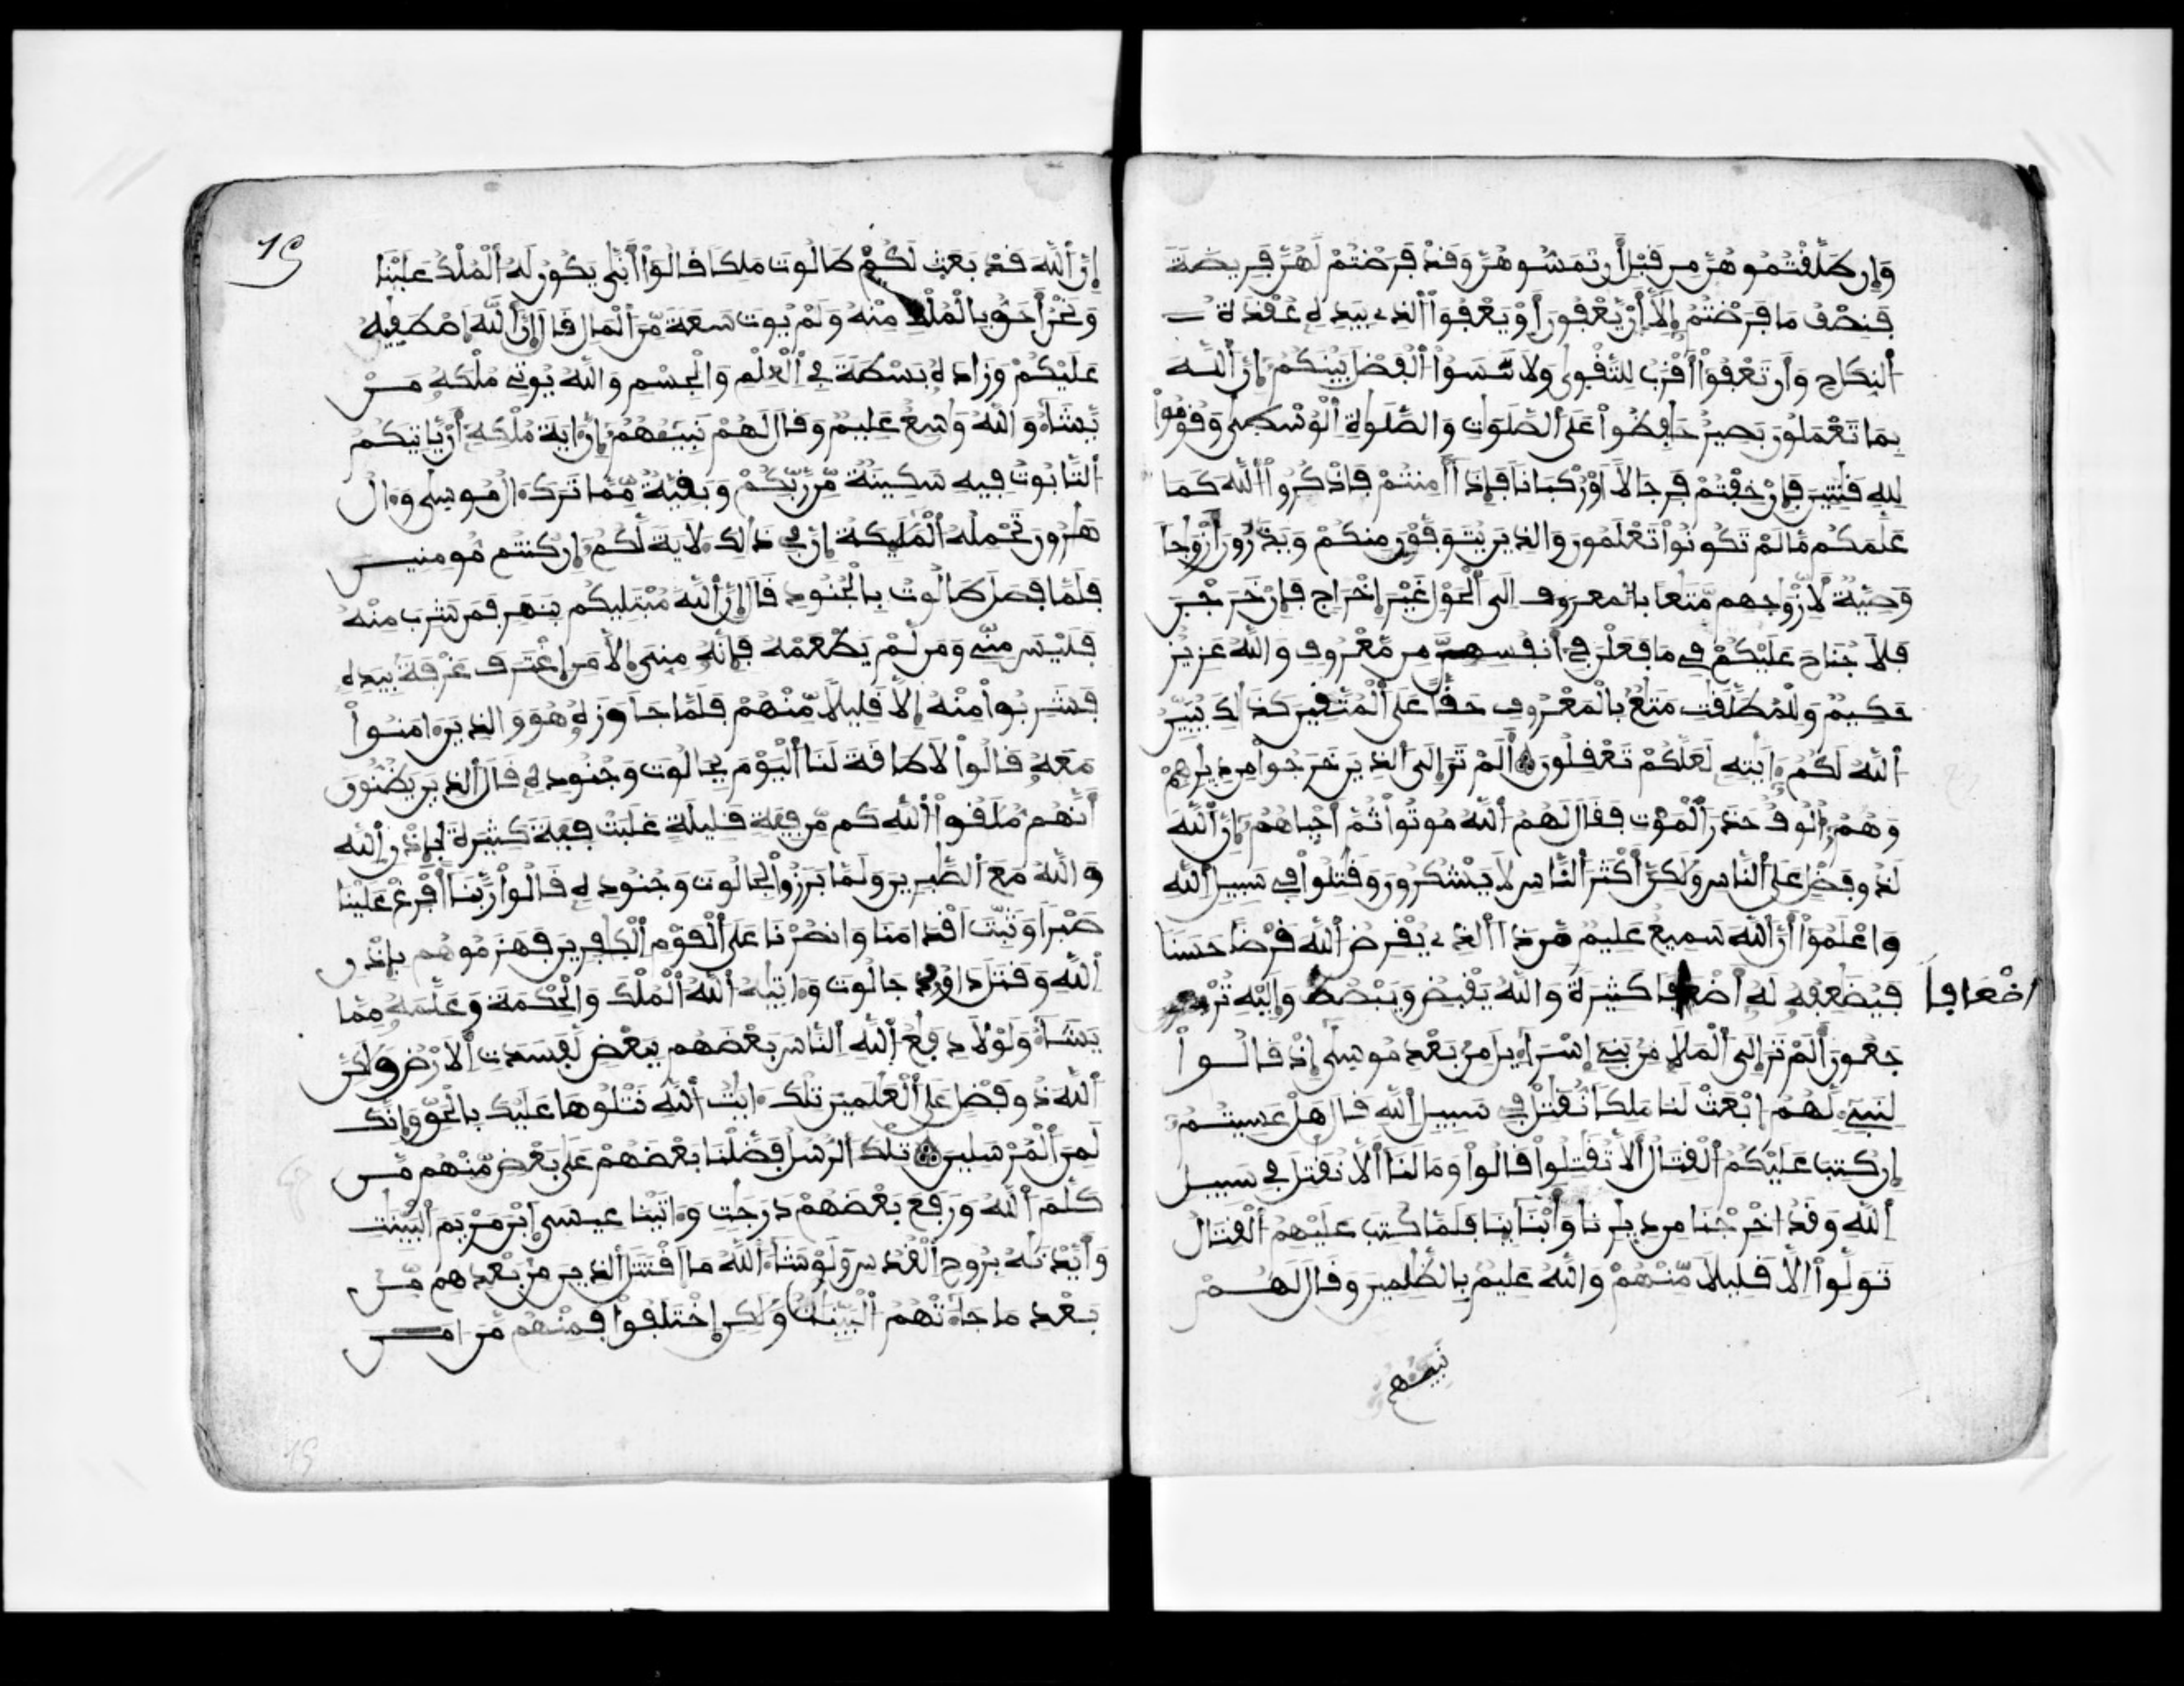 وَإِن طَلَّقْتُمُوهُنَّ مِن قَبْلِ أَن تَمَسُّوهُنَّ وَقَدْ فَرَضْتُمْ لَهُنَّ فَرِيضَةً
فَنِصْفُ مَا فَرَضْتُمُ إِلَّا أَنْ يَّعْفُونَ أَوْ يَعْفُوَاْ الذِي بِيَدِهِ عُقْدَةُ
النِّكَاحِ وَأَن تَعْفُوٓاْ أَقْرَبُ لِلتَّقْوَى وَلَا تَنسَوُاْ الْفَضْلَ بَيْنَكُمُ إِنَّ اللَّهَ
بِمَا تَعْمَلُونَ بَصِيرٌ حَافِظُواْ عَلَى الصَّلَوَاتِ وَالصَّلَوٰةِ الْوُسْطَى وَقُومُواْ
لِلهِ قَٰنِتِينَ فَإِنْ خِفْتُمْ فَرِجَالًا اَوْ رُكْبَانًا فَإِذَا أَمِنتُمْ فَاذْكُرُواْ اللَّهَ كَمَا
عَلَّمَكُم مَّا لَمْ تَكُونُواْ تَعْلَمُونَ وَالذِينَ يُتَوَفَّوْنَ مِنكُمْ وَيَذَرُونَ أَزْوَٰجًا
وَصِيَّةٌ لِّأَزْوَٰجِهِم مَّتَٰعًا بِالْمَعْرُوفِ اِلَى الْحَوْلِ غَيْرَ إِخْرَاجٍ فَإِنْ خَرَجْنَ
فَلَا جُنَاحَ عَلَيْكُمْ فِي مَا فَعَلْنَ فِي أَنفُسِهِنَّ مِن مَّعْرُوفٍ وَاللَّهُ عَزِيزٌ
حَكِيمٌ وَلِلْمُطَلَّقَٰتِ مَتَٰعٌ بِالْمَعْرُوفِ حَقًّا عَلَى الْمُتَّقِينَ كَذَٰلِكَ يُبَيِّنُ
اللَّهُ لَكُمُ ءَايَٰتِهِ لَعَلَّكُمْ تَعْقِلُونَ أَلَمْ تَرَ إِلَى الذِينَ خَرَجُواْ مِن دِيَٰرِهِمْ
وَهُمُ أُلُوفٌ حَذَرَ الْمَوْتِ فَقَالَ لَهُمُ اللَّهُ مُوتُواْ ثُمَّ أَحْيَاهُمُ إِنَّ اللَّهَ
لَذُو فَضْلٍ عَلَى النَّاسِ وَلَٰكِنَّ أَكْثَرَ النَّاسِ لَا يَشْكُرُونَ وَقَٰتِلُواْ فِي سَبِيلِ اللَّهِ
وَاعْلَمُوٓاْ أَنَّ اللَّهَ سَمِيعٌ عَلِيمٌ مَّن ذَا الذِي يُقْرِضُ اللَّهَ قَرْضًا حَسَنًا
فَيُضَٰعِفُهُ لَهُ أَضْعَافًا كَثِيرَةً وَاللَّهُ يَقْبِضُ وَيَبْصُطُ وَإِلَيْهِ تُرْ
اضْعَافاً
جَعُونَ أَلَمْ تَرَ إِلَى الْمَلَإِ مِنْ بَنِي إِسْرَاءِيلَ مِنْ بَعْدِ مُوسَى إِذْ قَالُواْ
لِنَبِيءٍ لَّهُمُ ابْعَثْ لَنَا مَلِكًا نُّقَٰتِلْ فِي سَبِيلِ اللَّهِ قَالَ هَلْ عَسِيتُمُ
إِن كُتِبَ عَلَيْكُمُ الْقِتَالُ أَلَّا تُقَٰتِلُواْ قَالُواْ وَمَا لَنَا أَلَّا نُقَٰتِلَ فِي سَبِيلِ
اللَّهِ وَقَدُ اخْرِجْنَا مِن دِيَٰرِنَا وَأَبْنَائِنَا فَلَمَّا كُتِبَ عَلَيْهِمُ الْقِتَالُ
تَوَلَّوِاْ اِلَّا قَلِيلًا مِّنْهُمْ وَاللَّهُ عَلِيمٌ بِالظَّٰلِمِينَ وَقَالَ لَهُمْ
نَبِيٓـُٔهُمُ
19
إِنَّ اللَّهَ قَدْ بَعَثَ لَكُمْ طَالُوتَ مَلِكًا قَالُوٓاْ أَنَّى يَكُونُ لَهُ الْمُلْكُ عَلَيْنَا
وَنَحْنُ أَحَقُّ بِالْمُلْكِ مِنْهُ وَلَمْ يُوتَ سَعَةً مِّنَ الْمَالِ قَالَ إِنَّ اللَّهَ اصْطَفِيٰهُ
عَلَيْكُمْ وَزَادَهُ بَسْطَةً فِي الْعِلْمِ وَالْجِسْمِ وَاللَّهُ يُوتِي مُلْكَهُ مَنْ
يَّشَاءُ وَاللَّهُ وَٰسِعٌ عَلِيمٌ وَقَالَ لَهُمْ نَبِيـُٔهُمُ إِنَّ ءَايَةَ مُلْكِهِ أَنْ يَّاتِيَكُمُ
التَّابُوتُ فِيهِ سَكِينَةٌ مِّن رَّبِّكُمْ وَبَقِيَّةٌ مِّمَّا تَرَكَ ءَالُ مُوسَى وَءَالُ
هَٰرُونَ تَحْمِلُهُ الْمَلَٰئِكَةُ إِنَّ فِي ذَٰلِكَ لَآيَةً لَّكُمُ إِن كُنتُم مُّومِنِينَ
فَلَمَّا فَصَلَ طَالُوتُ بِالْجُنُودِ قَالَ إِنَّ اللَّهَ مُبْتَلِيكُم بِنَهَرٍ فَمَن شَرِبَ مِنْهُ
فَلَيْسَ مِنِّي وَمَن لَّمْ يَطْعَمْهُ فَإِنَّهُ مِنِّيَ إِلَّا مَنِ اغْتَرَفَ غَرْفَةً بِيَدِهِ
فَشَرِبُواْ مِنْهُ إِلَّا قَلِيلًا مِّنْهُمْ فَلَمَّا جَاوَزَهُ هُوَ وَالذِينَ ءَامَنُواْ
مَعَهُ قَالُواْ لَا طَاقَةَ لَنَا الْيَوْمَ بِجَالُوتَ وَجُنُودِهِ قَالَ الذِينَ يَظُنُّونَ
أَنَّهُم مُّلَٰقُواْ اللَّهِ كَم مِّن فِئَةٍ قَلِيلَةٍ غَلَبَتْ فِئَةً كَثِيرَةً بِإِذْنِ اللَّهِ
وَاللَّهُ مَعَ الصَّٰبِرِينَ وَلَمَّا بَرَزُواْ لِجَالُوتَ وَجُنُودِهِ قَالُواْ رَبَّنَا أَفْرِغْ عَلَيْنَا
صَبْرًا وَثَبِّتَ اَقْدَامَنَا وَانصُرْنَا عَلَى الْقَوْمِ الْكَٰفِرِينَ فَهَزَمُوهُم بِإِذْنِ
اللَّهِ وَقَتَلَ دَاوُدُ جَالُوتَ وَءَاتَيٰهُ اللَّهُ الْمُلْكَ وَالْحِكْمَةَ وَعَلَّمَهُ مِمَّا
يَشَاءُ وَلَوْلَا دِفَٰعُ اللَّهِ النَّاسَ بَعْضَهُم بِبَعْضٍ لَّفَسَدَتِ الَارْضُ وَلَٰكِنَّ
اللَّهَ ذُو فَضْلٍ عَلَى الْعَٰلَمِينَ تِلْكَ ءَايَٰتُ اللَّهِ نَتْلُوهَا عَلَيْكَ بِالْحَقِّ وَإِنَّكَ
لَمِنَ الْمُرْسَلِينَ تِلْكَ الرُّسُلُ فَضَّلْنَا بَعْضَهُمْ عَلَى بَعْضٍ مِّنْهُم مَّن
كَلَّمَ اللَّهُ وَرَفَعَ بَعْضَهُمْ دَرَجَٰتٍ وَءَاتَيْنَا عِيسَى ابْنَ مَرْيَمَ الْبَيِّنَٰتِ
وَأَيَّدْنَٰهُ بِرُوحِ الْقُدُسِ وَلَوْ شَاءَ اللَّهُ مَا اقْتَتَلَ الذِينَ مِنْ بَعْدِهِم مِّن
بَعْدِ مَا جَاءَتْهُمُ الْبَيِّنَٰتُ وَلَٰكِنِ اِخْتَلَفُواْ فَمِنْهُم مَّنَ امَنَ
19